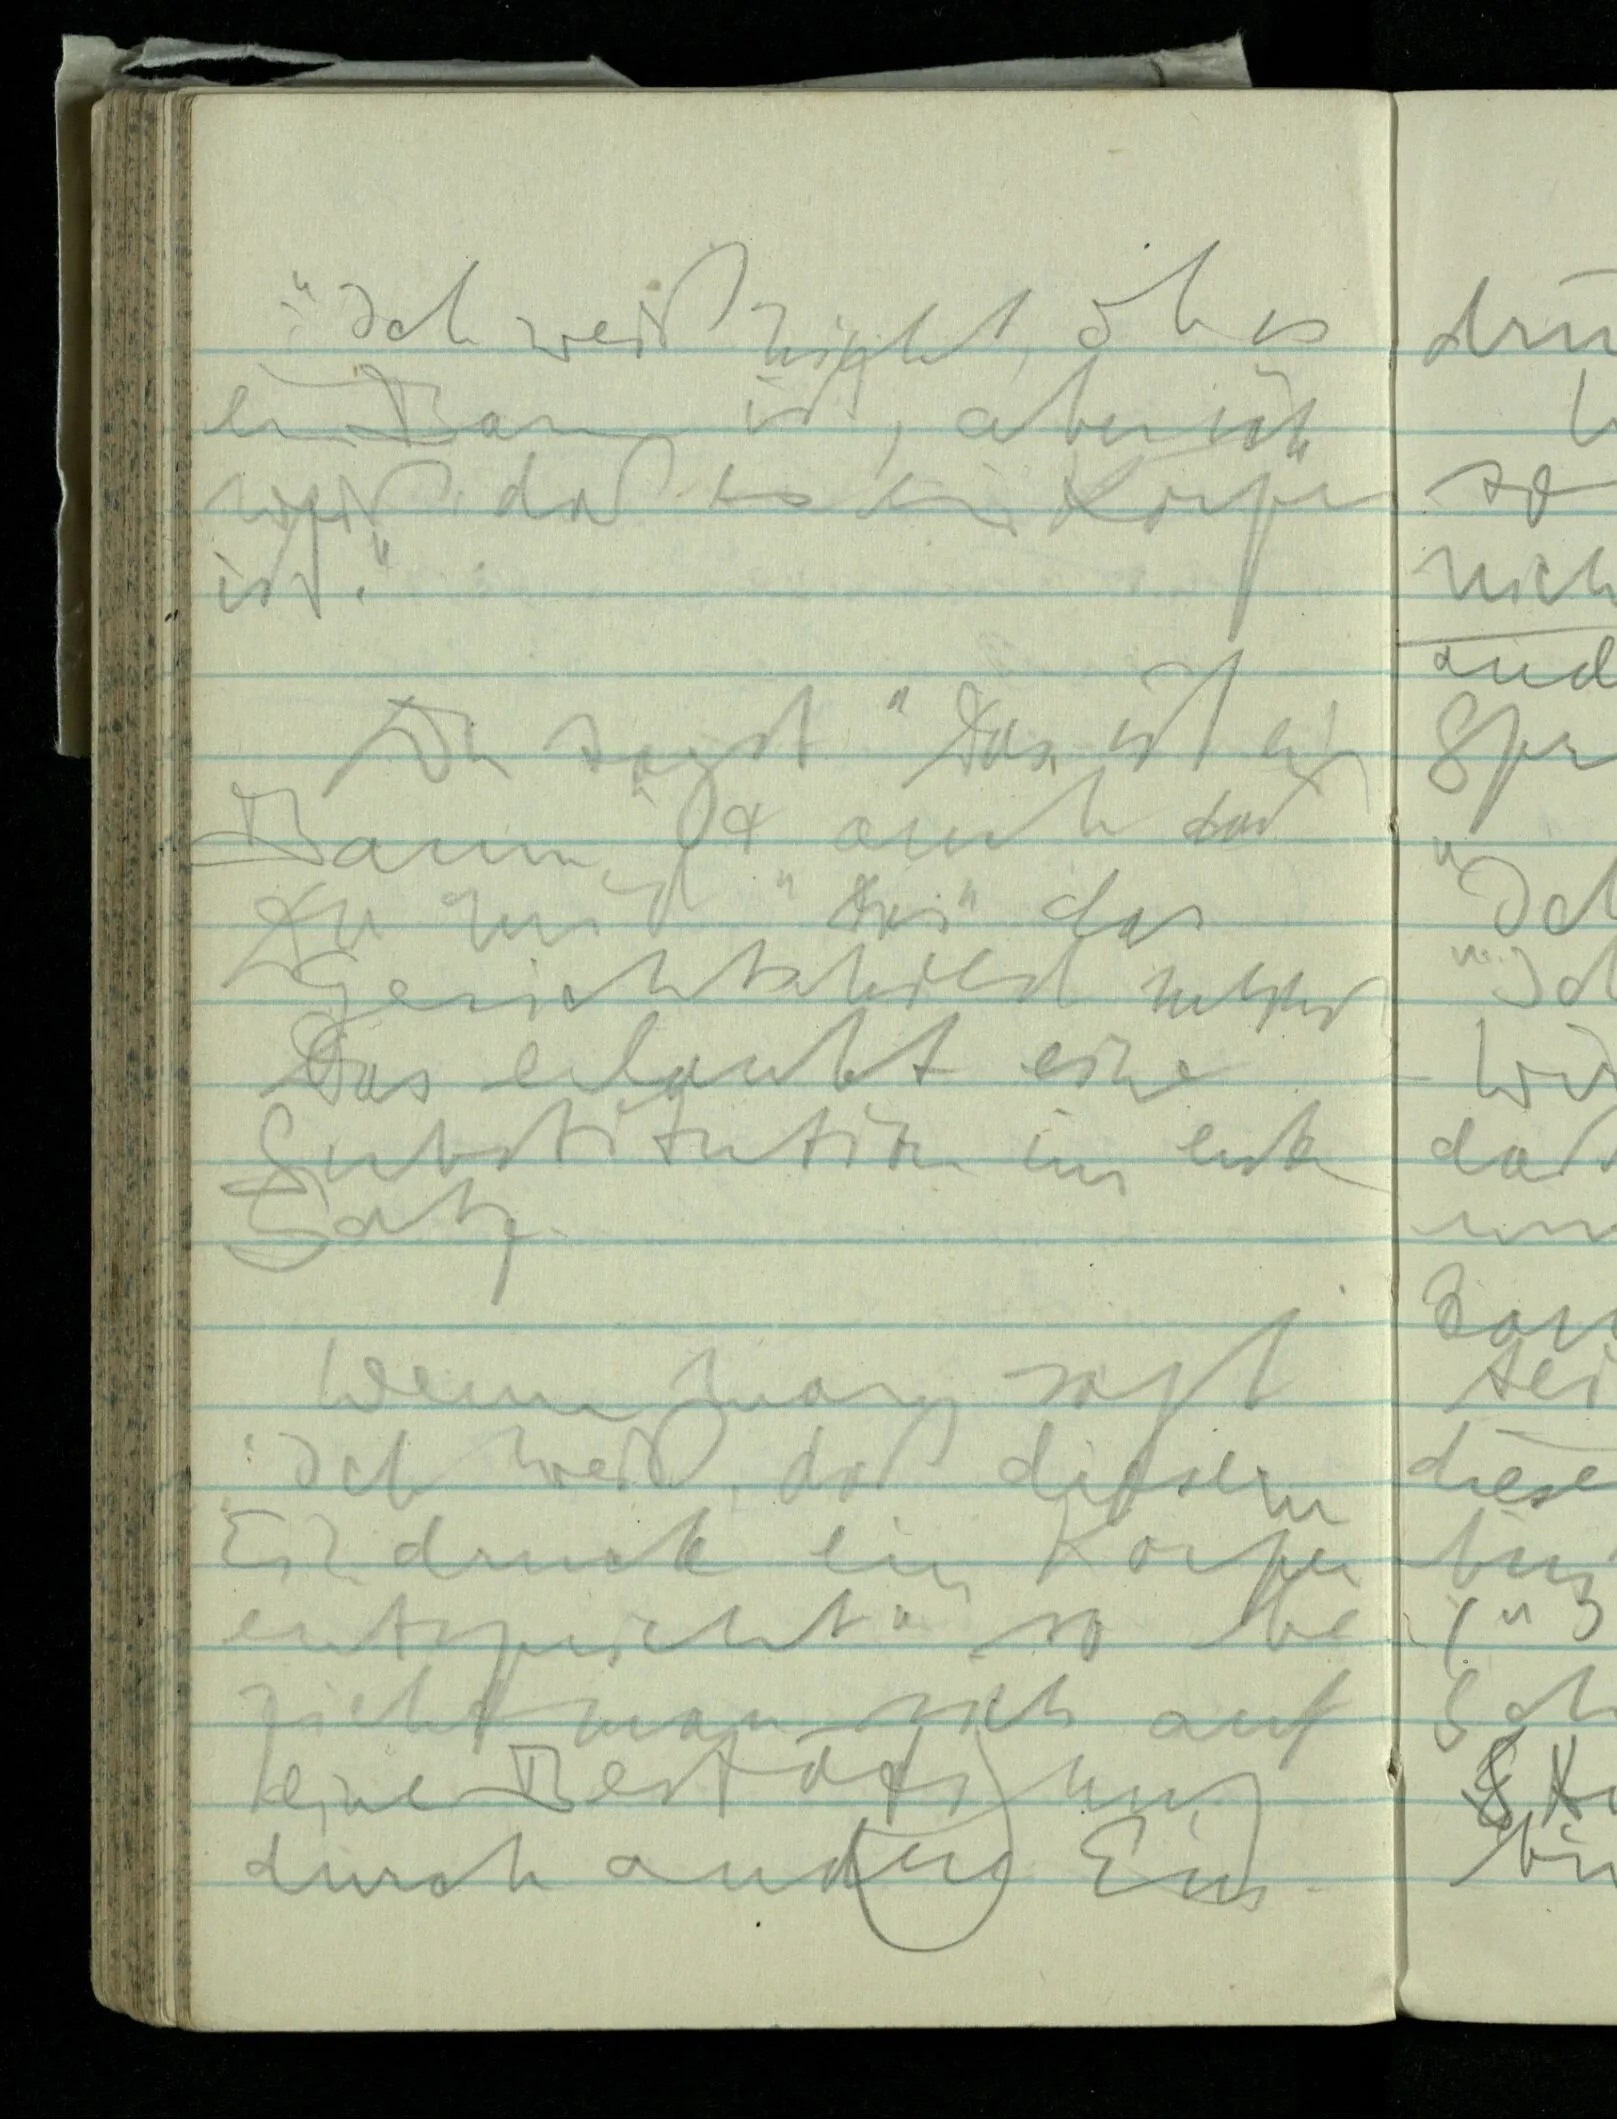 "Ich weiß nicht, ob es
ein Baum ist, aber ich
weiß, daß es ein Körper
ist."
Du sagst "Das ist ein
Baum". Ist auch
Du "das" das
Gesichtsbild selbst
Das erlaubt eine
Substitution im ersten
Satz.
Wenn man sagt
"Ich weiß, daß diesem
Eindruck ein Körper
entspricht" so be
zieht man sich auf
eine Bestätigung
durch andere Ein-
drü
so
nich
and
Spr
"Ich
"Ich
daß
diese